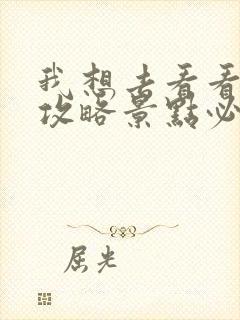 我想去看看
攻略景點必
屈光